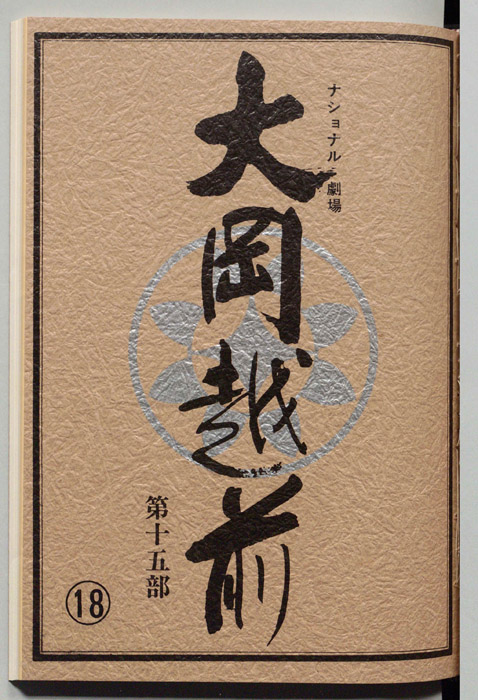 ナショナル劇場
大岡越前
第十五部
18